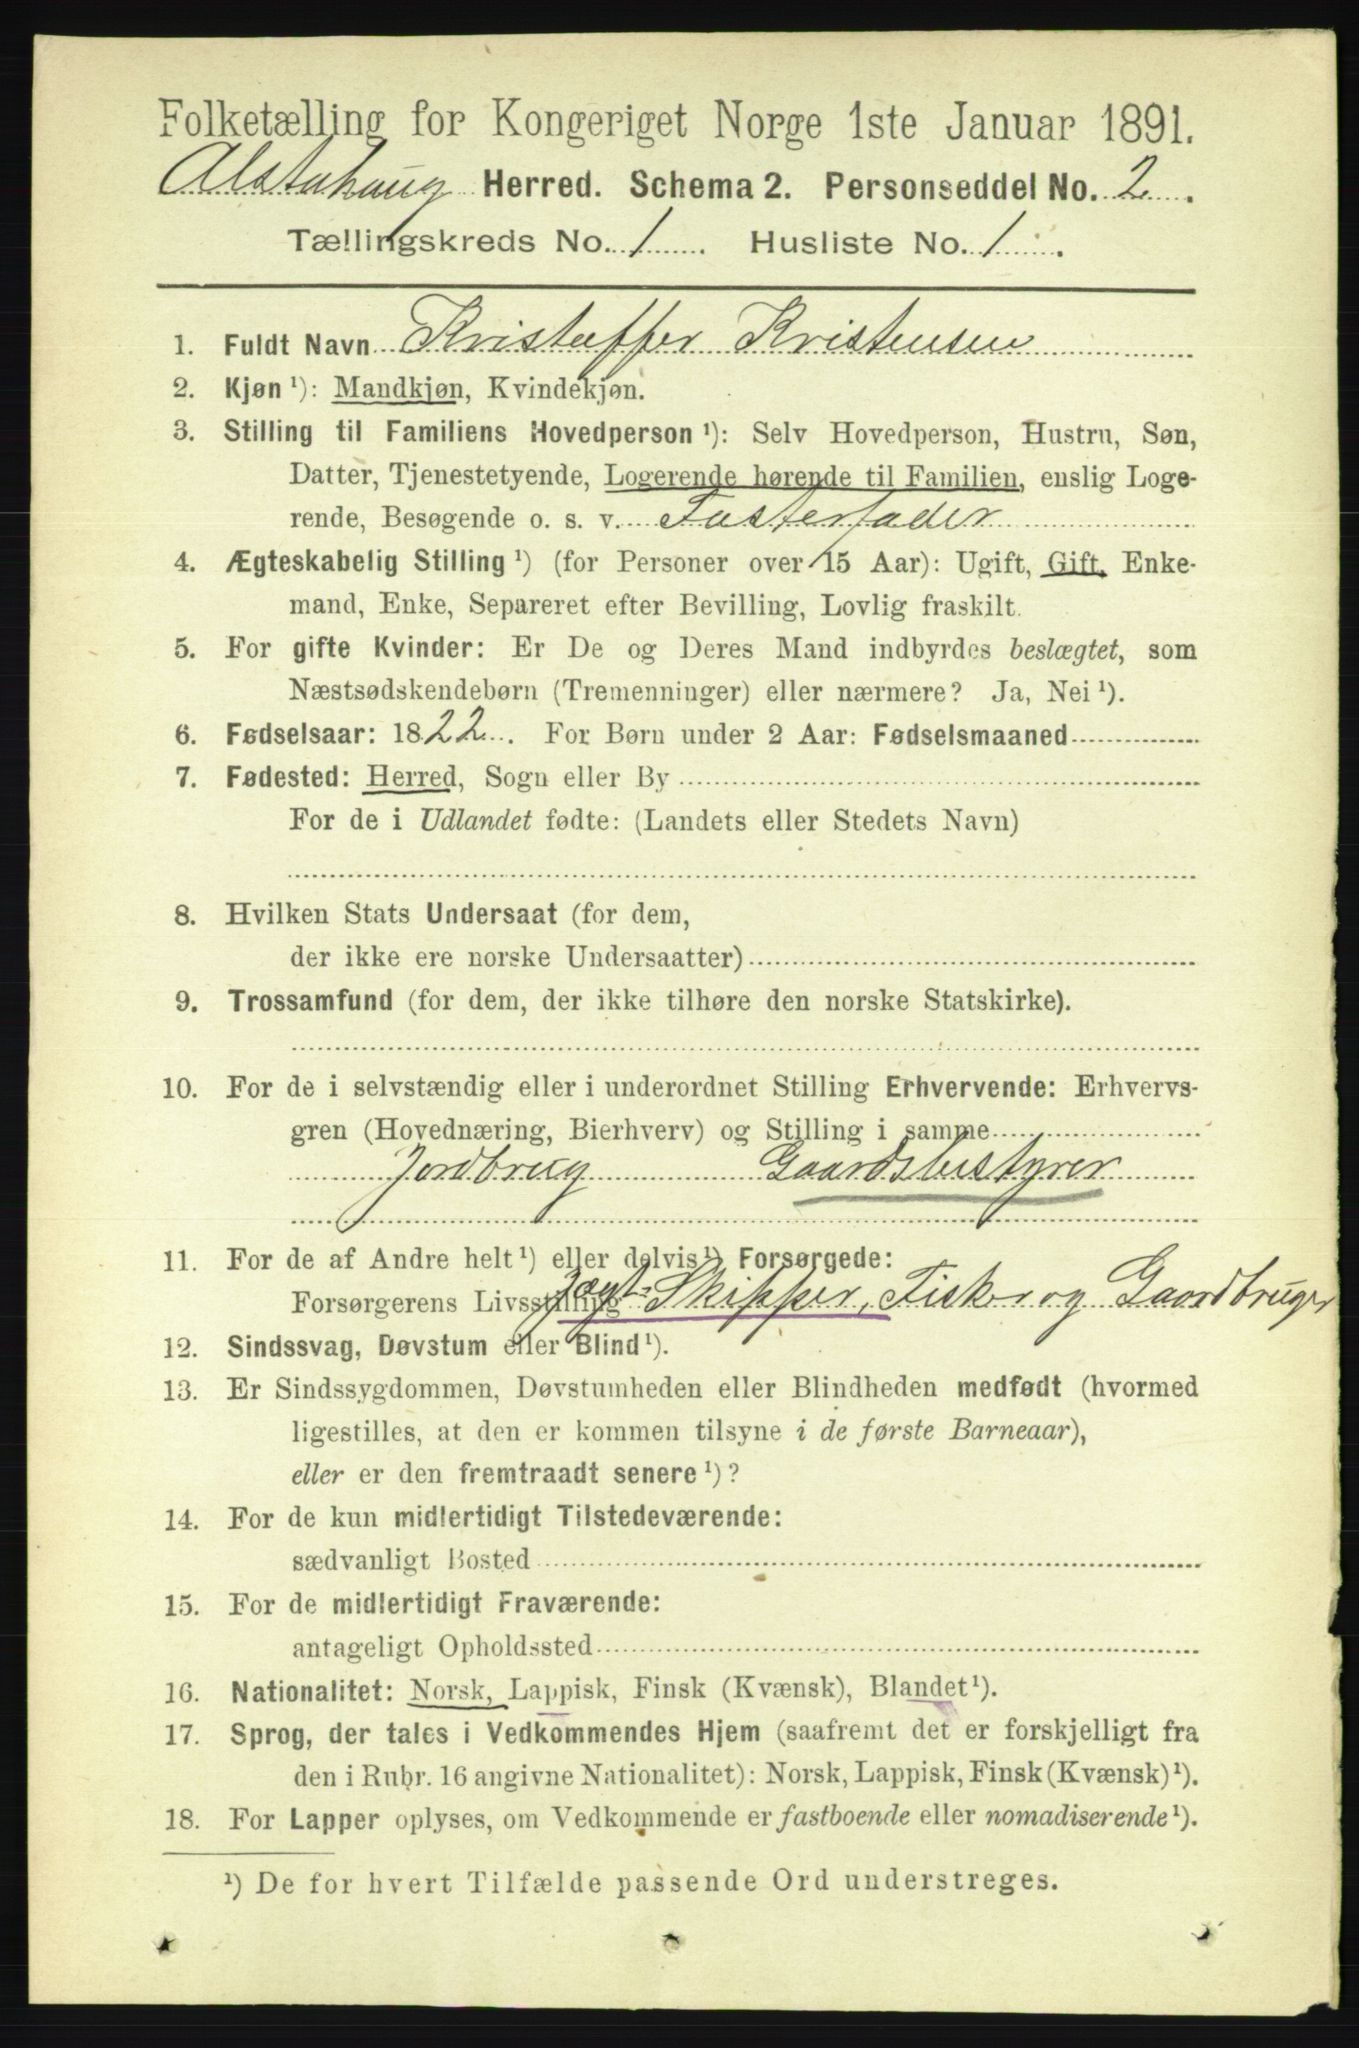 Folketælling for Kongeriget Norge 1ste Januar 1891.
Alstahaug Herred. Schema 2. Personseddel No. 2.
Tællingskreds No. 1. Husliste No. 1.
1. Fuldt Navn Kristoffer Kristensen
2. Kjøn ¹): Mandkjøn, Kvindekjøn.
3. Stilling til Familiens Hovedperson ¹): Selv Hovedperson, Hustru, Søn,
Datter, Tjenestetyende, Logerende hørende til Familien, enslig Loge-
rende, Besøgende o. s. v. Fosterfader
4. Ægteskabelig Stilling ¹) (for Personer over 15 Aar): Ugift, Gift, Enke-
mand, Enke, Separeret efter Bevilling, Lovlig fraskilt.
5. For gifte Kvinder: Er De og Deres Mand indbyrdes beslægtet, som
Næstsødskendebørn (Tremenninger) eller nærmere? Ja, Nei ¹).
6. Fødselsaar: 1822. For Børn under 2 Aar: Fødselsmaaned
7. Fødested: Herred, Sogn eller By
For de i Udlandet fødte: (Landets eller Stedets Navn)
8. Hvilken Stats Undersaat (for dem,
der ikke ere norske Undersaatter)
9. Trossamfund (for dem, der ikke tilhøre den norske Statskirke).
10. For de i selvstændig eller i underordnet Stilling Erhvervende: Erhvervs-
gren (Hovednæring, Bierhverv) og Stilling i samme
Jordbrug Gaardsbestyrer
11. For de af Andre helt ¹) eller delvis ¹) Forsørgede:
Forsørgerens Livsstilling Jægt-Skipper, Fisker og Gaardbruger
12. Sindssvag, Døvstum eller Blind ¹).
13. Er Sindssygdommen, Døvstumheden eller Blindheden medfødt (hvormed
ligestilles, at den er kommen tilsyne i de første Barneaar),
eller er den fremtraadt senere ¹)?
14. For de kun midlertidigt Tilstedeværende:
sædvanligt Bosted
15. For de midlertidigt Fraværende:
antageligt Opholdssted
16. Nationalitet: Norsk, Lappisk, Finsk (Kvænsk), Blandet ¹).
17. Sprog, der tales i Vedkommendes Hjem (saafremt det er forskjelligt fra
den i Rubr. 16 angivne Nationalitet): Norsk, Lappisk, Finsk (Kvænsk) ¹).
18. For Lapper oplyses, om Vedkommende er fastboende eller nomadiserende ¹).
¹) De for hvert Tilfælde passende Ord understreges.